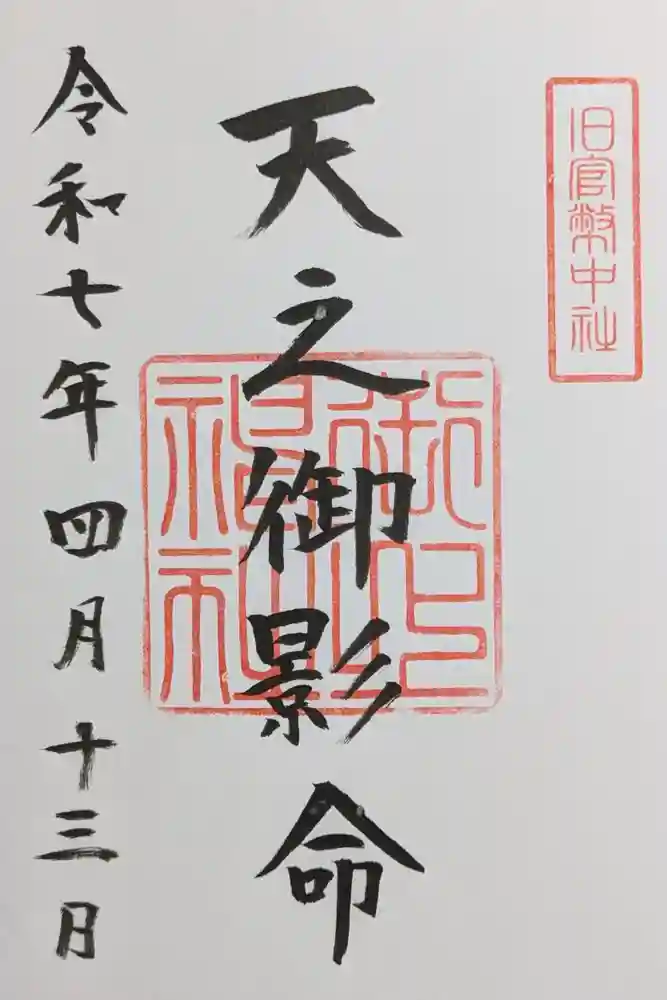 旧官幣中社
天之御影命
御上神社
令和七年四月十三日